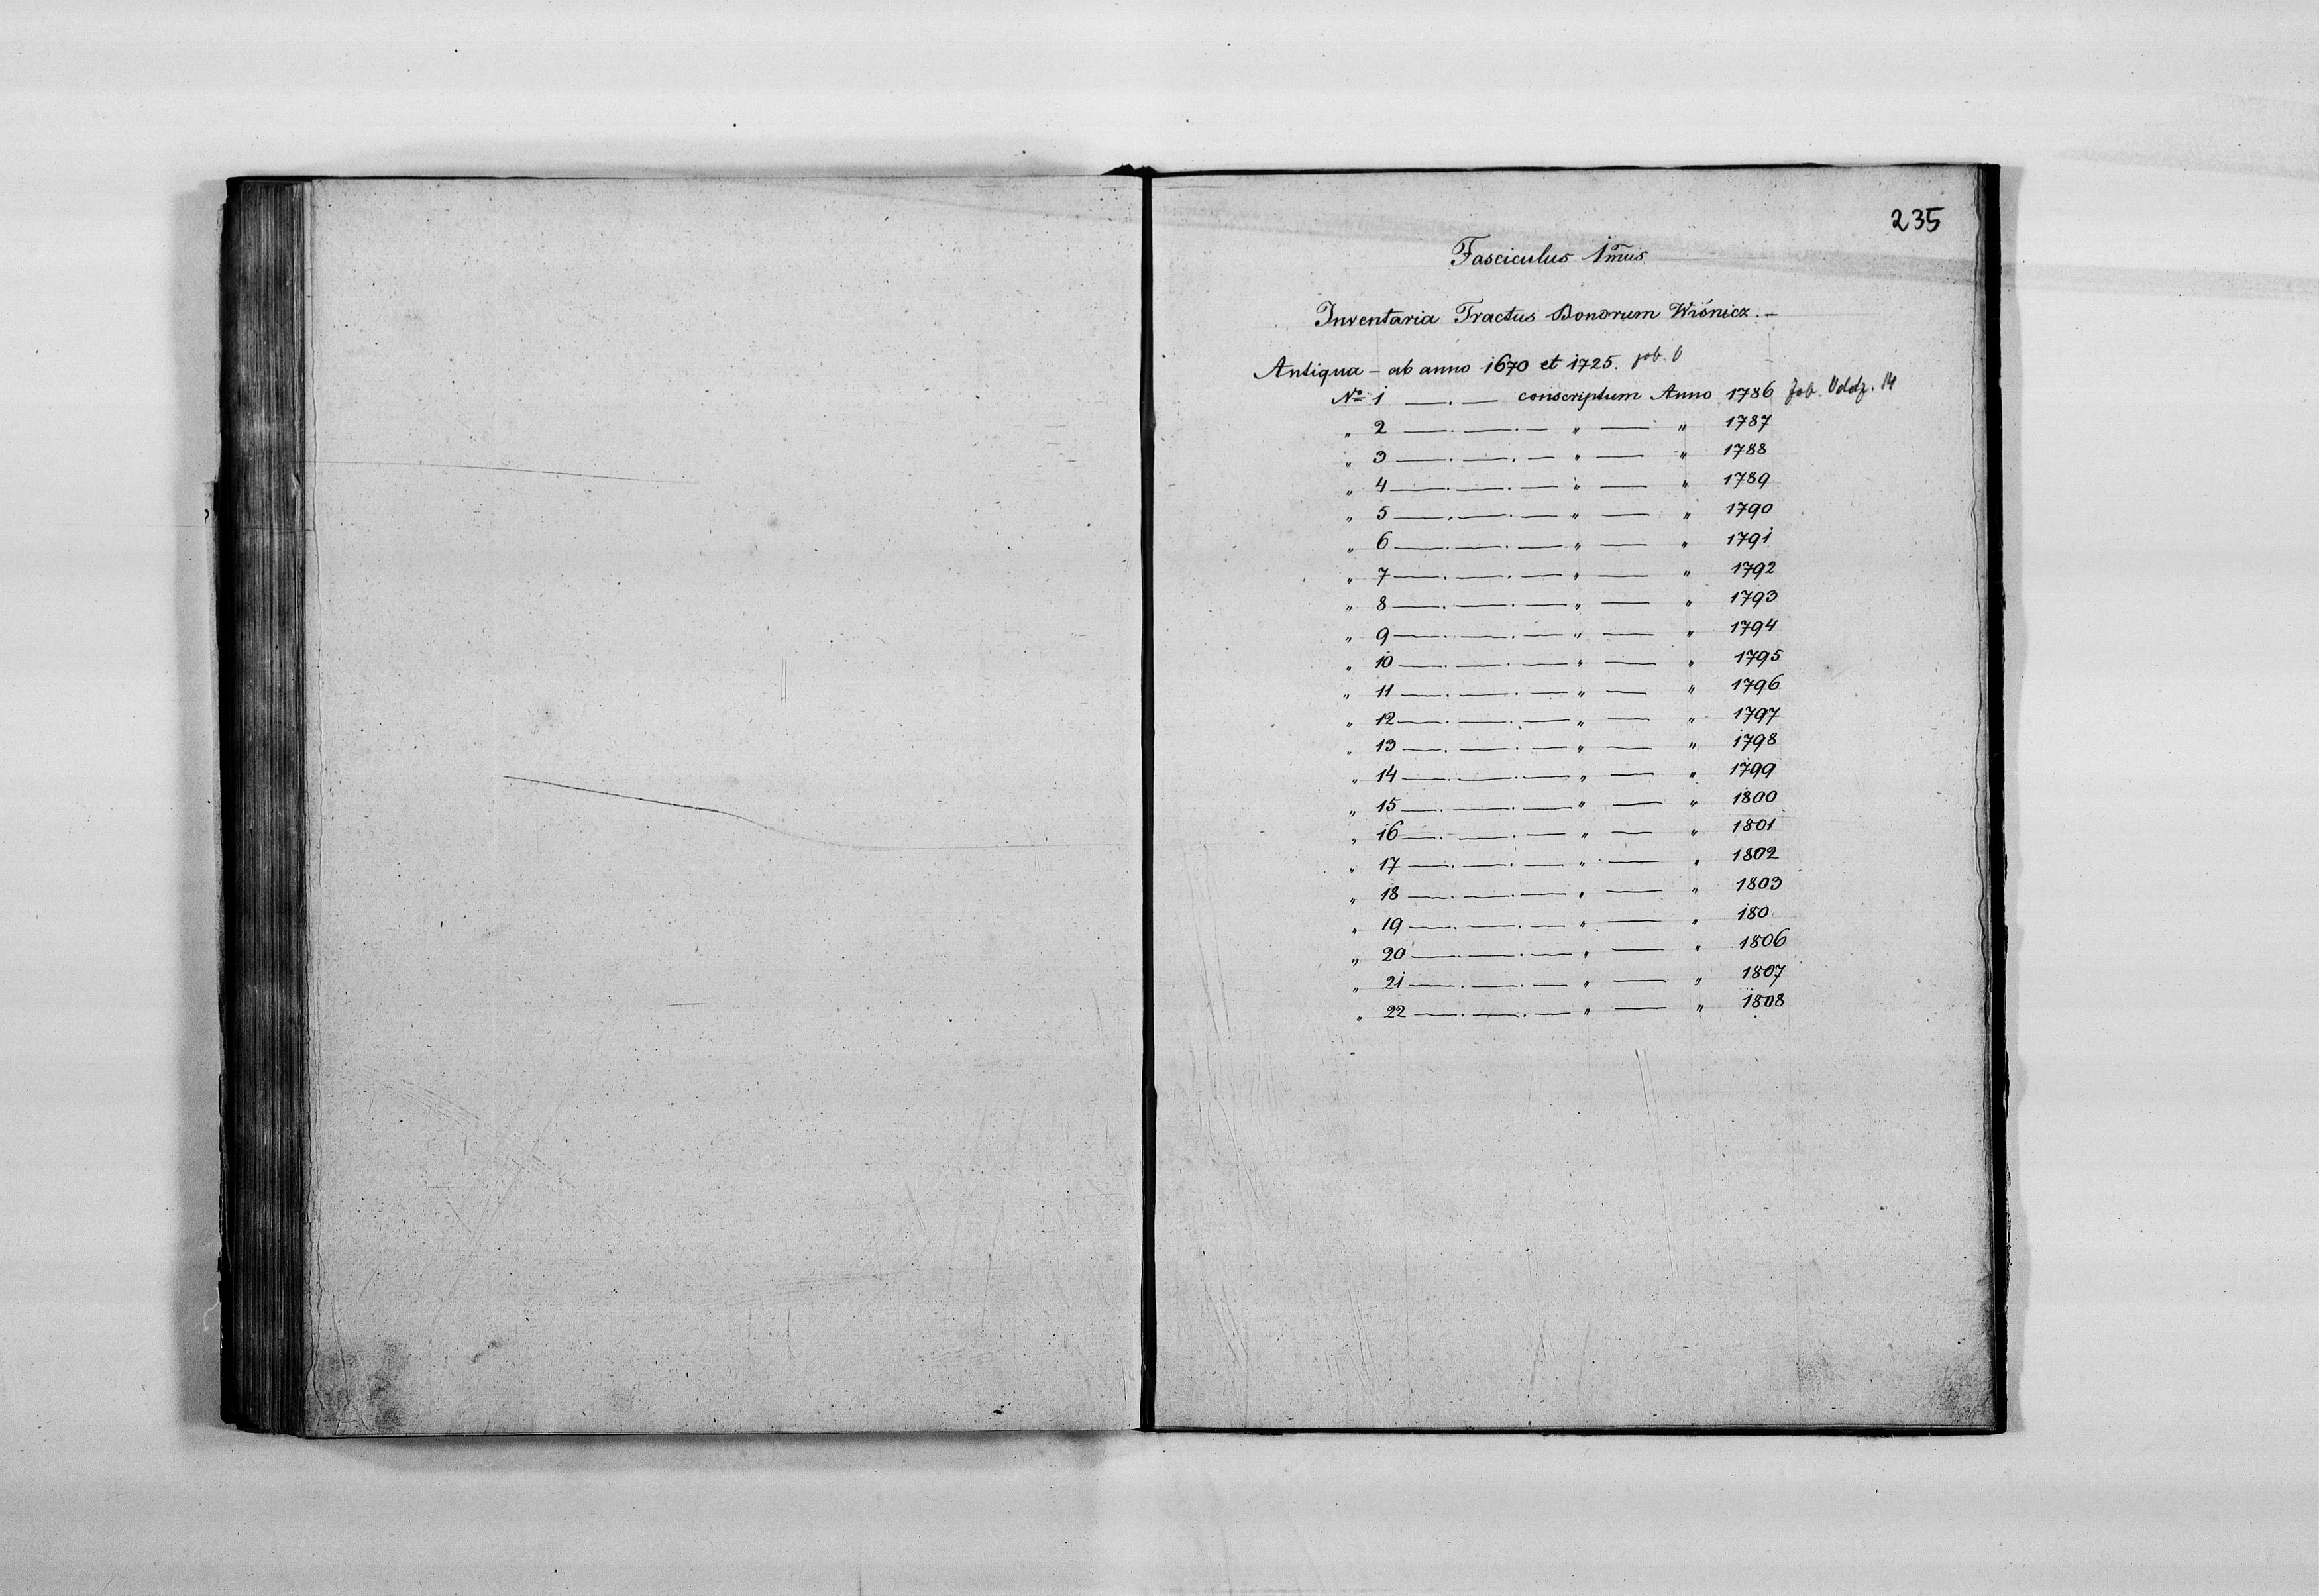 235
Fasciculus 1mus
Inventaria Tractus Bonorum Wiśnicz. —
Antiqua — ab anno 1670 et 1725.
No 1 —.— conscriptum Anno 1786 Zob. Oddz. 14
„ 2 —.—.— „ — „ 1787
„ 3 —.—.— „ — „ 1788
„ 4 —.—.— „ — „ 1789
„ 5 —.—.— „ — „ 1790
„ 6 —.—.— „ — „ 1791
„ 7 —.—.— „ — „ 1792
„ 8 —.—.— „ — „ 1793
„ 9 —.—.— „ — „ 1794
„ 10 —.—.— „ — „ 1795
„ 11 —.—.— „ — „ 1796
„ 12 —.—.— „ — „ 1797
„ 13 —.—.— „ — „ 1798
„ 14 —.—.— „ — „ 1799
„ 15 —.—.— „ — „ 1800
„ 16 —.—.— „ — „ 1801
„ 17 —.—.— „ — „ 1802
„ 18 —.—.— „ — „ 1803
„ 19 —.—.— „ — „ 180
„ 20 —.—.— „ — „ 1806
„ 21 —.—.— „ — „ 1807
„ 22 —.—.— „ — „ 1808